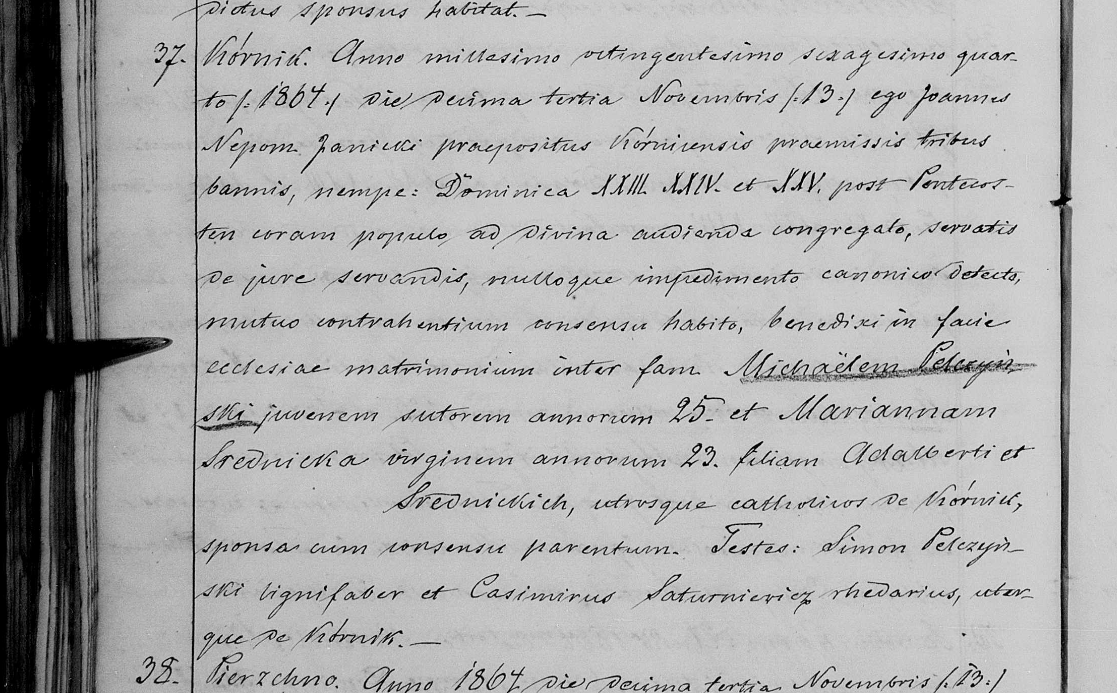 dictus sponsus habitat. —
37. Kórnik. Anno millesimo octingentesimo sexagesimo quar-
to /:1864:/ die decima tertia Novembris /:13:/ ego Joannes
Nepom. Janicki praepositus Kórnicensis praemissis tribus
bannis, nempe: Dominica XXIII. XXIV. et XXV. post Pentecos-
ten coram populo ad divina audienda congregato, servatis
de jure servandis, nulloque impedimento canonico detecto,
mutuo contrahentium consensu habito, benedixi in facie
ecclesiae matrimonium inter fam Michaëlem Pelczyń-
ski juvenem sutorem annorum 25. et Mariannam
Srednicka virginem annorum 23. filiam Adalberti et
Srednickich, utrosque catholicos de Kórnik,
sponsa cum consensu parentum. Testes: Simon Pelczyń-
ski lignifaber et Casimirus Saturniewicz rhedarius, uter-
que de Kórnik. —
38. Pierzchno. Anno 1864 die decima tertia Novembris /:13:/